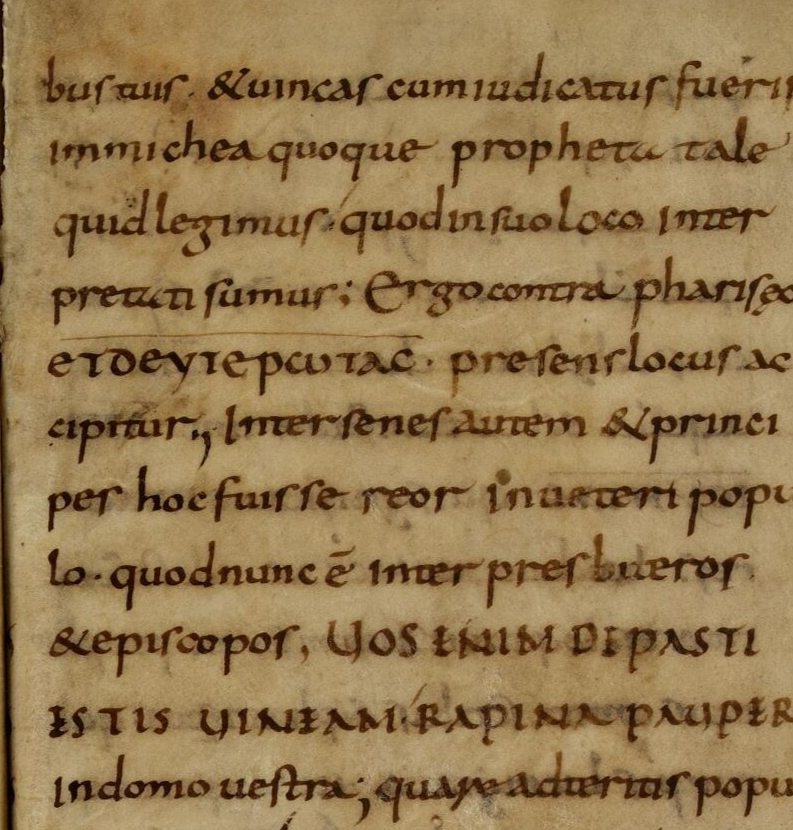 bustuis. &uincas cumiudicatus fueri
immichea quoque propheta tale
quid legimus. quod insuo loco inter
pretati sumus; Ergo contra pharisęo
ετδεyτερωτας. presens locus ac
cipitur., Inter senes autem & princi
pes hoc fuisse reor inueteri popu
lo. quod nunc ē inter presbiteros
& episcopos, UOS ENIM DEPASTI
ESTIS UINEAM. RAPINA PAUPER
Indomo uestra; quare adteritis popu